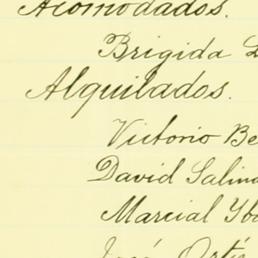 Acomodados.
Brigida
Alquilados.
Victorio
David
Marcial
José Ortíz